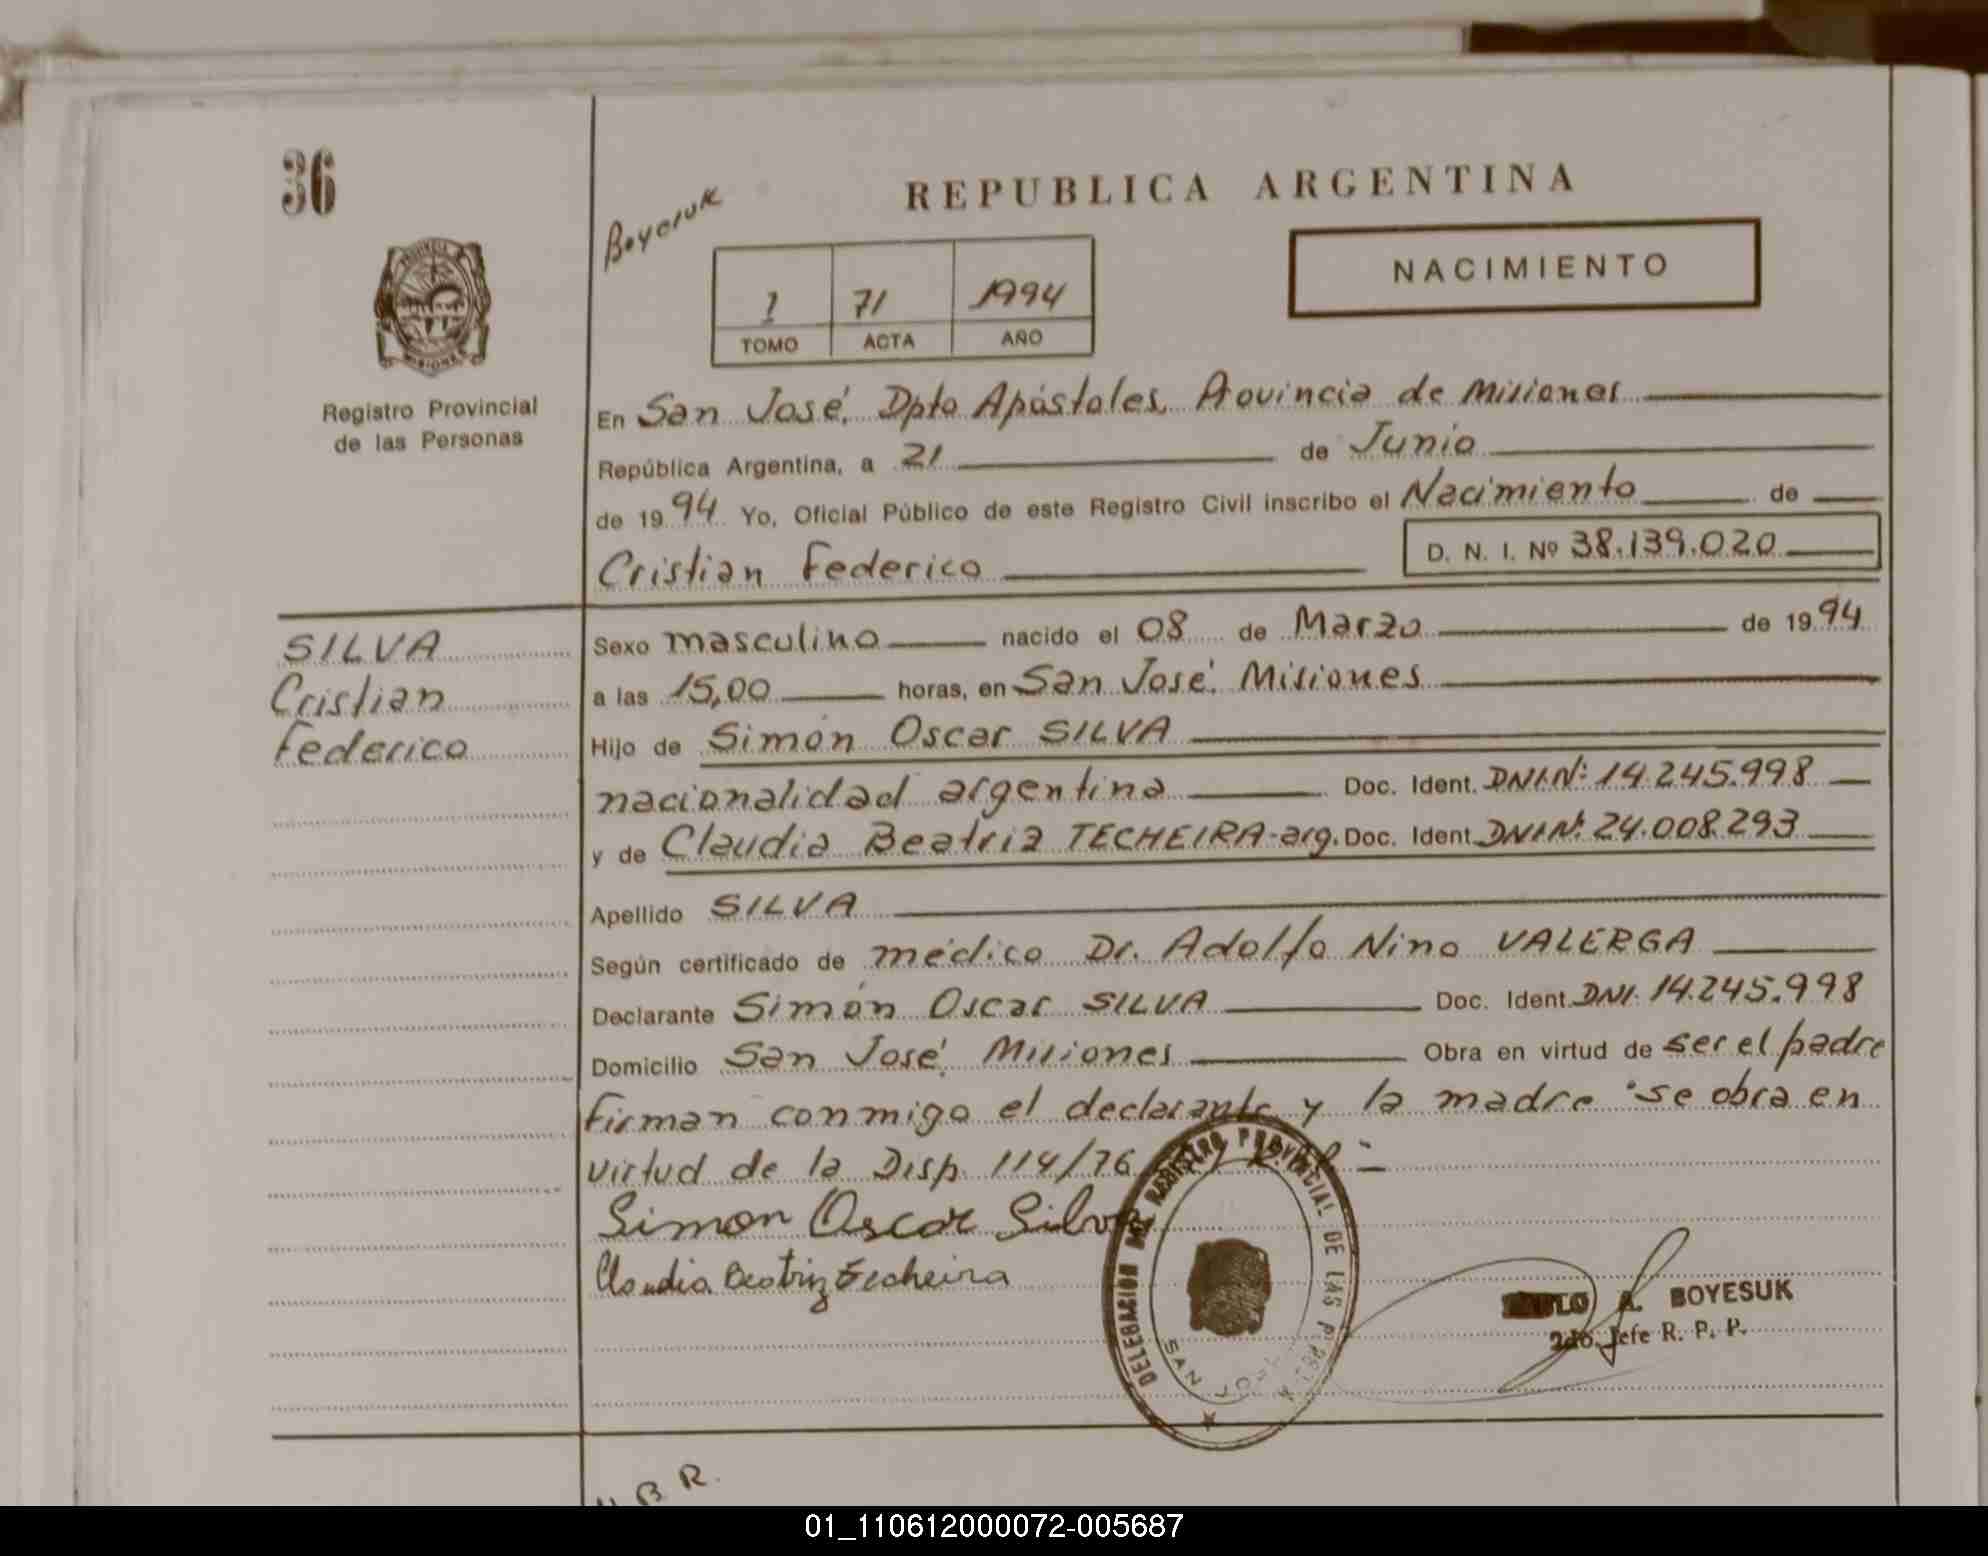 36
Boyesuk
REPUBLICA ARGENTINA
NACIMIENTO
1 71 1994
TOMO ACTA AÑO
Registro Provincial
de las Personas
En San José, Dpto Apóstoles, Provincia de Misiones
República Argentina, a 21 de Junio
de 1994 Yo, Oficial Público de este Registro Civil inscribo el Nacimiento de
Cristian Federico D. N. I. Nº 38.139.020
SILVA
Cristian
Federico
Sexo masculino nacido el 08 de Marzo de 1994
a las 15,00 horas, en San José. Misiones
Hijo de Simón Oscar SILVA
nacionalidad argentina Doc. Ident. DNI.Nº: 14.245.998
y de Claudia Beatriz TECHEIRA-arg. Doc. Ident. DNI Nº: 24.008.293
Apellido SILVA
Según certificado de médico Dr. Adolfo Nino VALERGA
Declarante Simón Oscar SILVA Doc. Ident. DNI. 14.245.998
Domicilio San José, Misiones Obra en virtud de ser el padre
firman conmigo el declarante y la madre se obra en
virtud de la Disp. 114/76
Simon Oscar Silva
Claudia Beatriz Techeira
DELEGACION DEL REGISTRO PROVINCIAL DE LAS PERS
SAN JOSE
A. BOYESUK
2do. Jefe R. P. P.
B R.
01_110612000072-005687